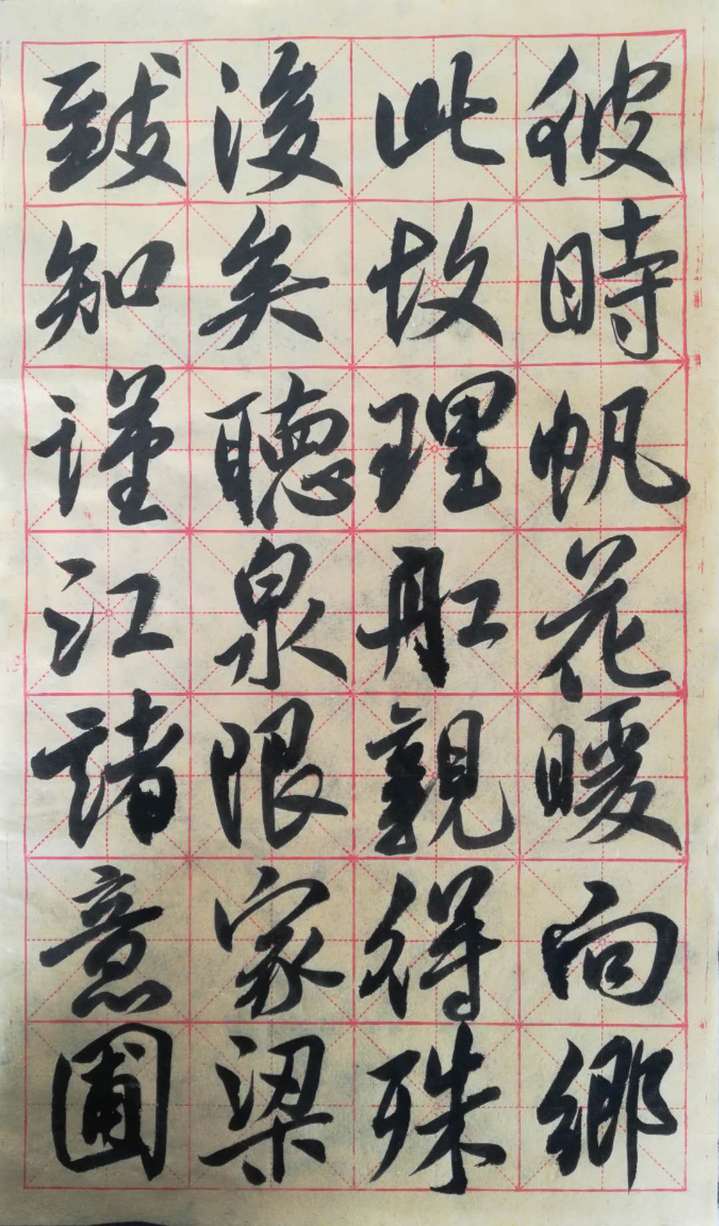 彼時帆花暖向鄉
此故理舡親得殊
後矣聽泉限家梁
致知謹江諸意圃